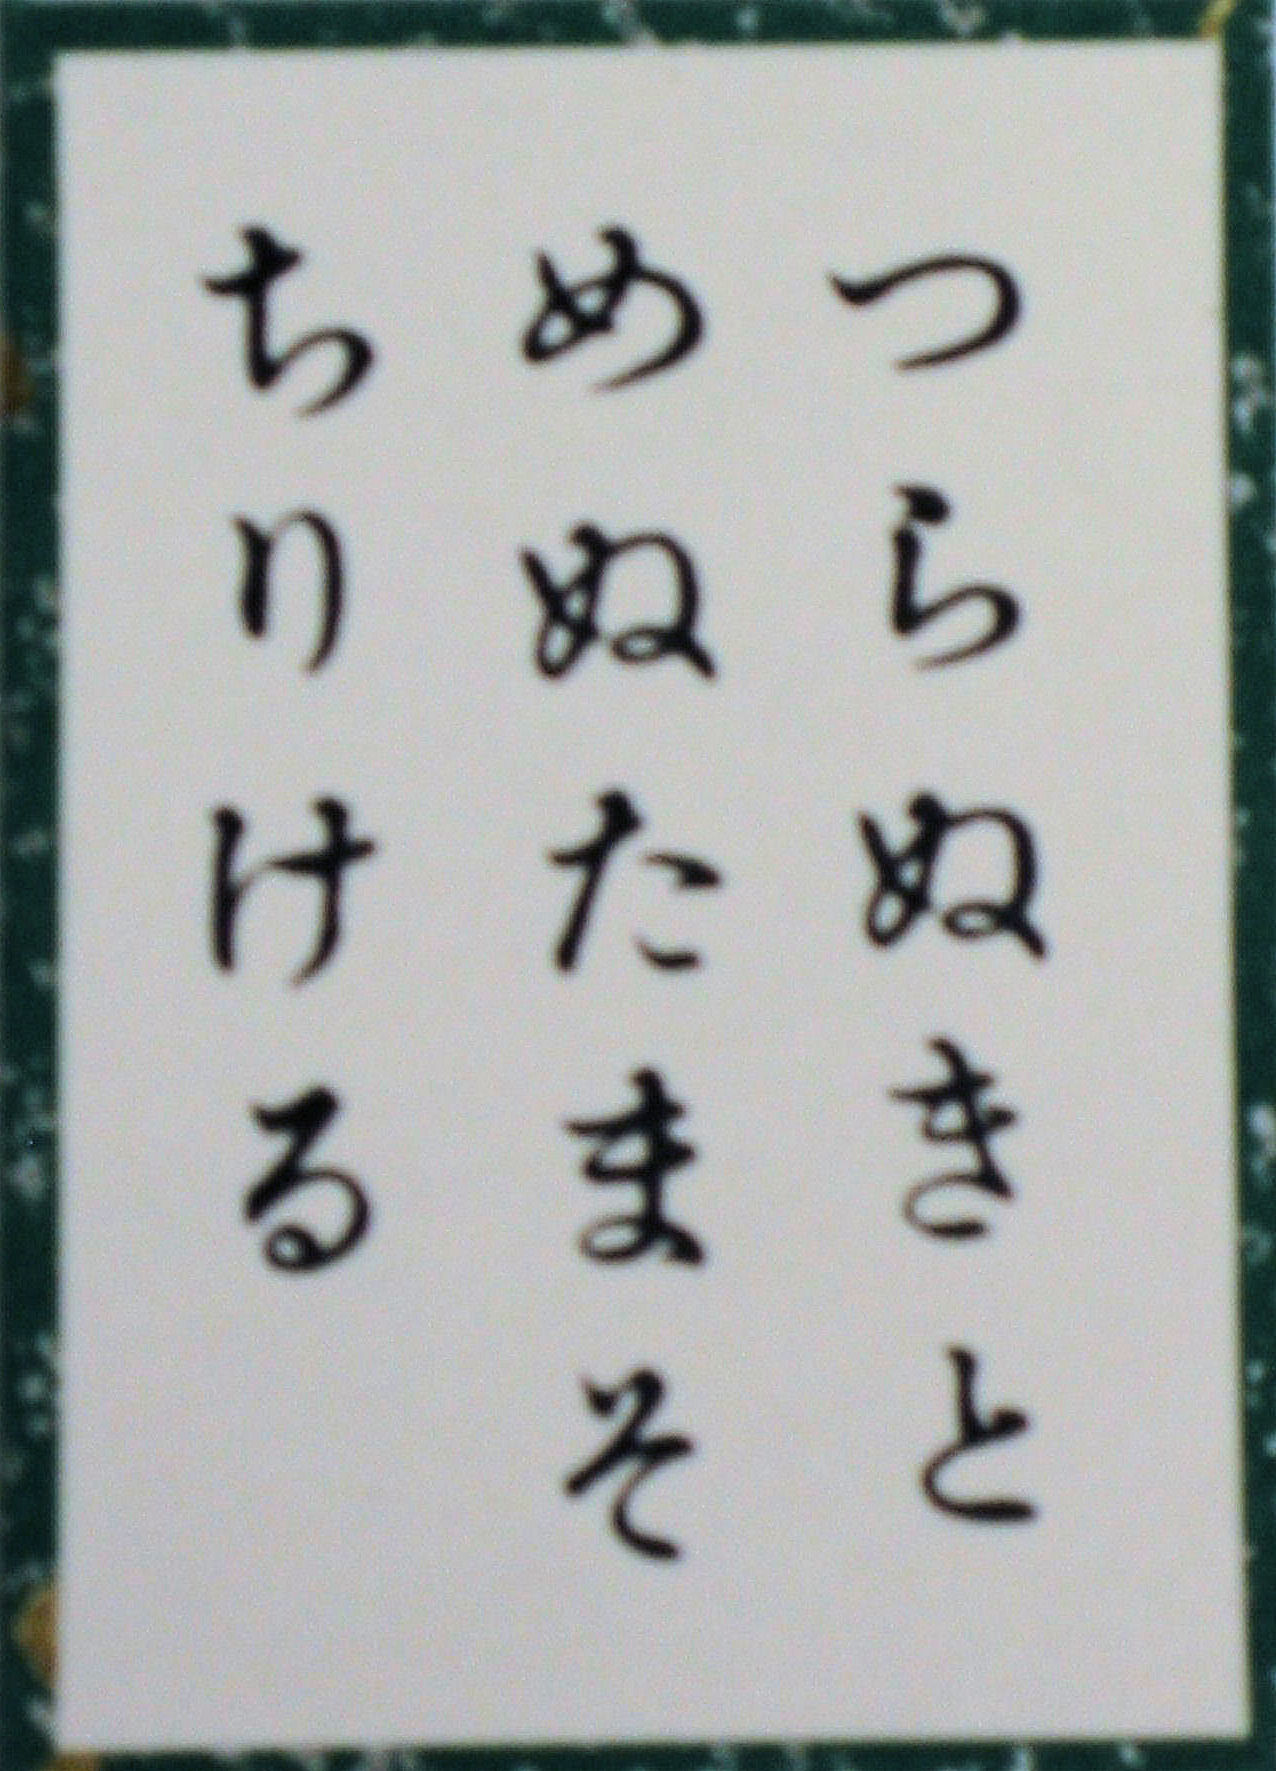 つらぬきと
めぬたまそ
ちりける